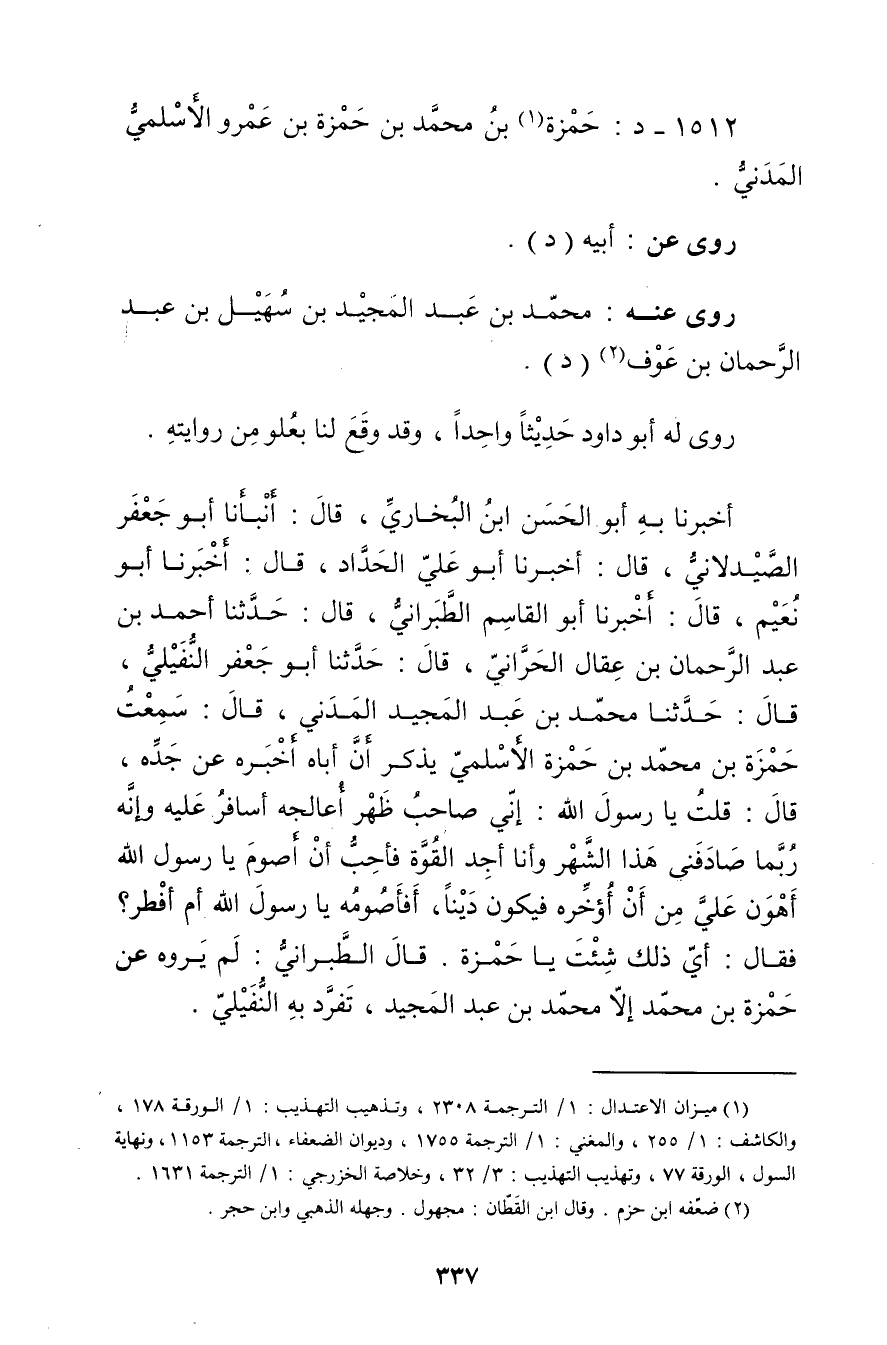 ١٥١٢ ـ د : حَمْزة(١) بنُ محمَّد بن حَمْزة بن عَمْرو الأَسْلميُّ
المَدَنيُّ .
روى عن : أبيه ( د ) .
روى عنـه : محمّـد بن عَبـد المَجِيْـد بن سُهَيْـل بن عبـد
الرَّحمان بن عَوْف(٢) ( د ) .
روى له أبو داود حَدِيْثاً واحِداً ، وقد وقَعَ لنا بعُلو مِن روايتهِ .
أخبرنا بـهِ أبو الحَسَن ابنُ البُخـاريِّ ، قالَ : أَنْبـأَنا أبـو جَعْفَر
الصَّيْـدلانيُّ ، قال : أخبـرنا أبـو عَليّ الحَدَّاد ، قـال : أَخْبَرنـا أبـو
نُعَيْم ، قالَ : أَخْبرنا أبو القاسِم الطَّبَرانيُّ ، قال : حَـدَّثنا أحمـد بن
عبد الرَّحمان بن عِقال الحَرَّانيّ ، قالَ : حَدَّثنا أبـو جَعْفر النُّفَيْليُّ ،
قـالَ : حَـدَّثنـا محمّـد بن عَبـد المَجيـد المَـدَني ، قـالَ : سَمِعْتُ
حَمْزَة بن محمّد بن حَمْزة الأَسْلميّ يذكـر أَنَّ أباه أَخْبَـره عن جَدِّه ،
قالَ : قلتُ يا رسولَ الله : إنّي صاحبُ ظَهْر أُعالجه أسافرُ عَليه وإنَّه
رُبَّما صَادَفَني هَذا الشَّهْر وأنا أجِد القُوَّة فأحِبُّ أنْ أَصومَ يا رسول الله
أَهْوَن عَليَّ مِن أَنْ أُؤخِّره فيكون دَيْناً، أَفأَصُومُه يا رسولَ الله أم أفْطر؟
فقـال : أيّ ذلك شِئْتَ يـا حَمْـزة . قـالَ الـطَّبـرانيُّ : لَم يَـروه عن
حَمْزة بن محمّد إلّا محمّد بن عبد المَجيد ، تَفرَّد بهِ النُّفَيْليّ .
(١) ميـزان الاعتـدال : ١/ التـرجمـة ٢٣٠٨ ، وتـذهيب التهـذيب : ١/ الـورقـة ١٧٨ ،
والكاشف : ١/ ٢٥٥ ، والمغني : ١/ الترجمة ١٧٥٥ ، وديوان الضعفاء ، الترجمة ١١٥٣ ، ونهاية
السول ، الورقة ٧٧ ، وتهذيب التهذيب : ٣/ ٣٢ ، وخلاصة الخزرجي : ١/ الترجمة ١٦٣١ .
(٢) ضعّفه ابن حزم . وقال ابن القَطّان : مجهول . وجهله الذهبي وابن حجر .
٣٣٧